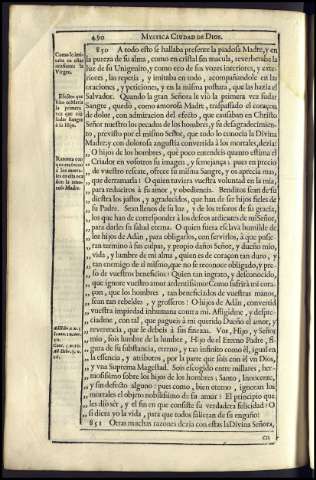 490 MYSTICA CIUDAD DE DIOS.
850 A todo esto se hallaba presente la piadosa Madre, y en
la pureza de su alma, como en cristal sin macula, reverberaba la
luz de su Unigenito, y como eco de sus vozes interiores, y exte-
riores, las repetia, y imitaba en todo, acompañandole en las
oraciones, y peticiones, y en la misma postura, que las hazia el
Salvador. Quando la gran Señora le viò la primera vez verter
Sangre, quedò, como amorosa Madre, traspassado el coraçon
de dolor, con admiracion del efecto, que causaban en Christo
Señor nuestro los pecados de los hombres, y su desagradecimien-
to, previsto por el mismo Señor, que todo lo conocia la Divina
Madre; y con dolorosa angustia convertida à los mortales, dezia:
O hijos de los hombres, què poco entendeis quanto estima el
Criador en vosotros su imagen, y semejança! pues en precio
de vuestro rescate, ofrece su misma Sangre, y os aprecia mas,
que derramarla! O quien tuviera vuestra voluntad en la mia,
para reduciros à su amor, y obediencia. Benditos sean de su
diestra los justos, y agradecidos, que han de ser hijos fieles de
su Padre. Sean llenos de su luz, y de los tesoros de su gracia,
los que han de corresponder à los deseos ardientes de mi Señor,
para darles su salud eterna. O quien fuera esclava humilde de
los hijos de Adàn, para obligarlos, con servirlos, à que pusie-
ran termino à sus culpas, y proprio daño! Señor, y dueño mio,
vida, y lumbre de mi alma, quien es de coraçon tan duro, y
tan enemigo de si mismo, que no se reconoce obligado, y pre-
so de vuestros beneficios? Quien tan ingrato, y desconocido,
que ignore vuestro amor ardentissimo? Como sufrirà mi cora-
çon, que los hombres, tan beneficiados de vuestras manos,
sean tan rebeldes, y grosseros? O hijos de Adàn, convertid
vuestra impiedad inhumana contra mi. Afligidme, y despre-
ciadme, con tal, que pagueis à mi querido Dueño el amor, y
reverencia, que le debeis à sus finezas. Vos, Hijo, y Señor
mio, sois lumbre de la lumbre, Hijo de el Eterno Padre, fi-
gura de su substancia, eterno, y tan infinito como èl, igual en
la essencia, y atributos, por la parte que sois con èl vn Dios,
y vna Suprema Magestad. Sois escogido entre millares, her-
mosissimo sobre los hijos de los hombres; Santo, Inocente,
y sin defecto alguno: pues como, bien eterno, ignoran los
mortales el objeto nobilissimo de su amor? El principio que
les diò sèr, y el fin en que consiste su verdadera felicidad? O
si diera yo la vida, para que todos salieran de su engaño!
851 Otras muchas razones dezia con estas la Divina Señora,